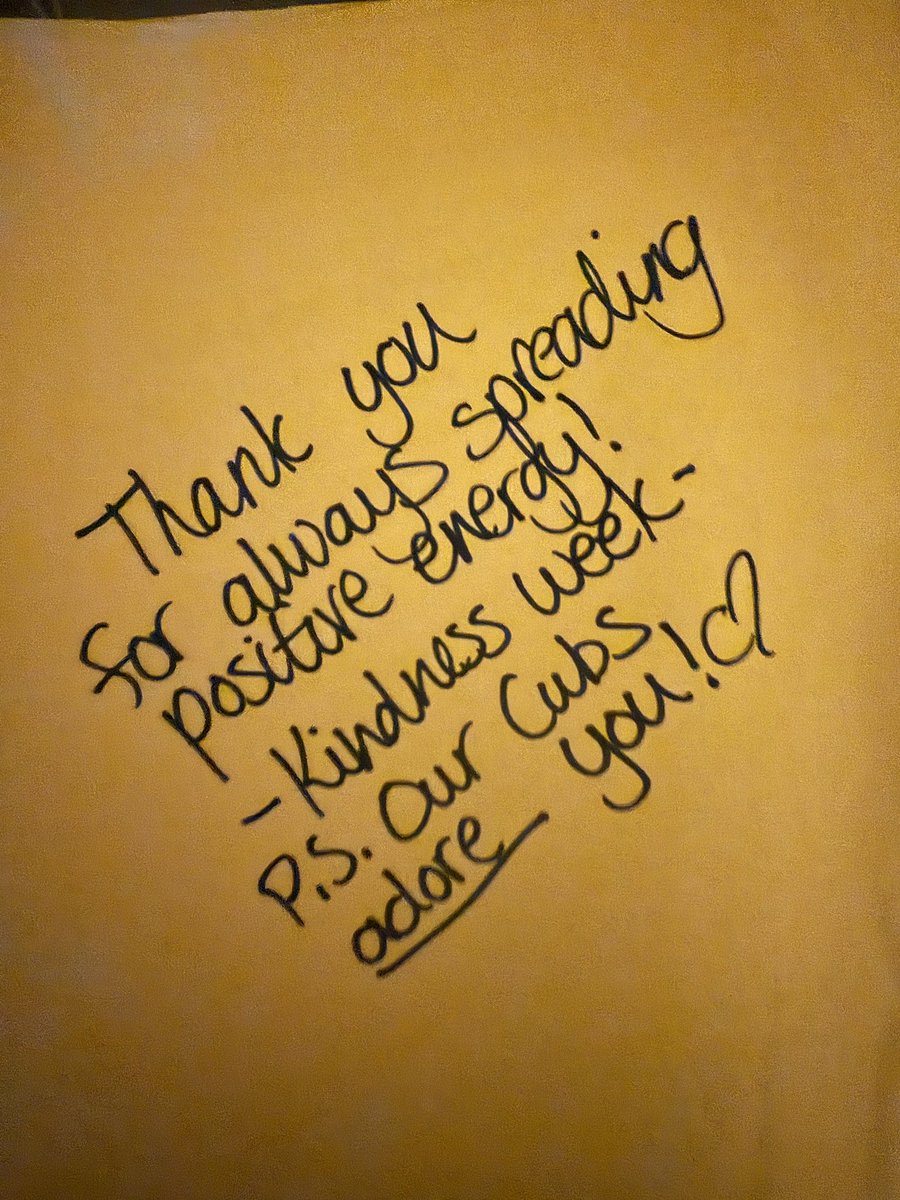 Thank you
for always spreading
positive energy!
-Kindness week-
P.S. Our Cubs
adore you!♡